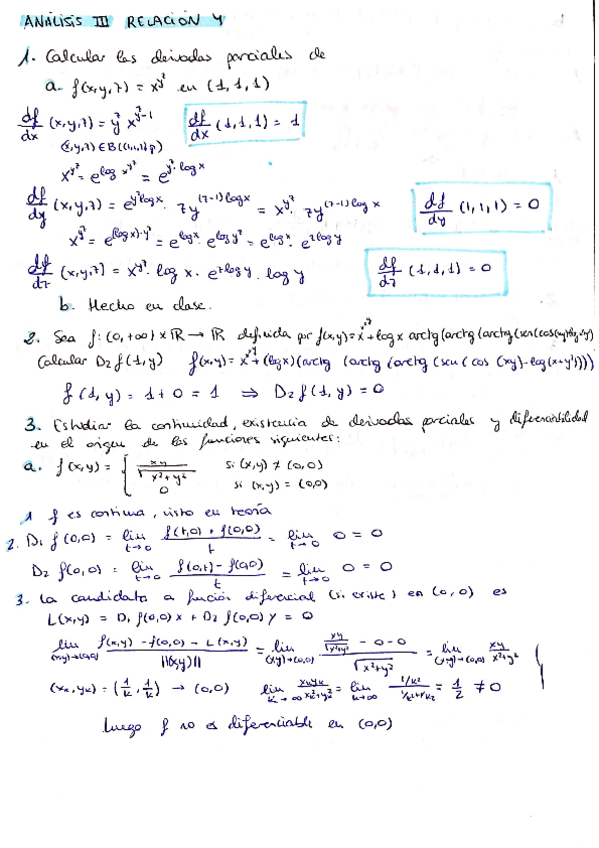 ANÁLISIS III RELACIÓN 4
1. Calcular las derivadas parciales de
a. f(x,y,z) = x^{y^z} en (1,1,1)
df/dx (x,y,z) = y^z x^{y^z-1} df/dx (1,1,1) = 1
(x,y,z) ∈ B((1,1,1),ρ)
x^{y^z} = e^{log x^{y^z}} = e^{y^z·log x}
df/dy (x,y,z) = e^{y^z log x} · z y^{(z-1)} log x = x^{y^z} · z y^{(z-1)} log x df/dy (1,1,1) = 0
x^{y^z} = e^{(log x)·y^z} = e^{log x} · e^{log y^z} = e^{log x} · e^{z log y}
df/dz (x,y,z) = x^{y^z} · log x · e^{z log y} · log y df/dz (1,1,1) = 0
b. Hecho en clase.
2. Sea f: (0,+∞) × ℝ → ℝ definida por f(x,y) = + log x arctg(arctg(arctg(sen(cos(xy)
Calcular D₂ f(1,y) f(x,y) = + (log x)(arctg (arctg (arctg (sen (cos (xy) - log(x+y))))))
f(1,y) = 1+0 = 1 ⇒ D₂ f(1,y) = 0
3. Estudiar la continuidad, existencia de derivadas parciales y diferenciabilidad
en el origen de las funciones siguientes:
a. f(x,y) = { xy/√(x²+y²) si (x,y) ≠ (0,0)
0 si (x,y) = (0,0)
1 f es continua, visto en teoría
2. D₁ f(0,0) = lim_{t→0} (f(t,0) + f(0,0))/t = lim_{t→0} 0 = 0
D₂ f(0,0) = lim_{t→0} (f(0,t) - f(0,0))/t = lim_{t→0} 0 = 0
3. La candidata a función diferencial (si existe) en (0,0) es
L(x,y) = D₁ f(0,0) x + D₂ f(0,0) y = 0
lim_{(x,y)→(0,0)} (f(x,y) - f(0,0) - L(x,y))/||(x,y)|| = lim_{(x,y)→(0,0)} (xy/√(x²+y²) - 0 - 0)/√(x²+y²) = lim_{(x,y)→(0,0)} xy/(x²+y²)
(x_k, y_k) = (1/k, 1/k) → (0,0) lim_{k→∞} x_k y_k/(x_k²+y_k²) = lim_{k→∞} (1/k²)/(1/k²+1/k²) = 1/2 ≠ 0
Luego f no es diferenciable en (0,0)